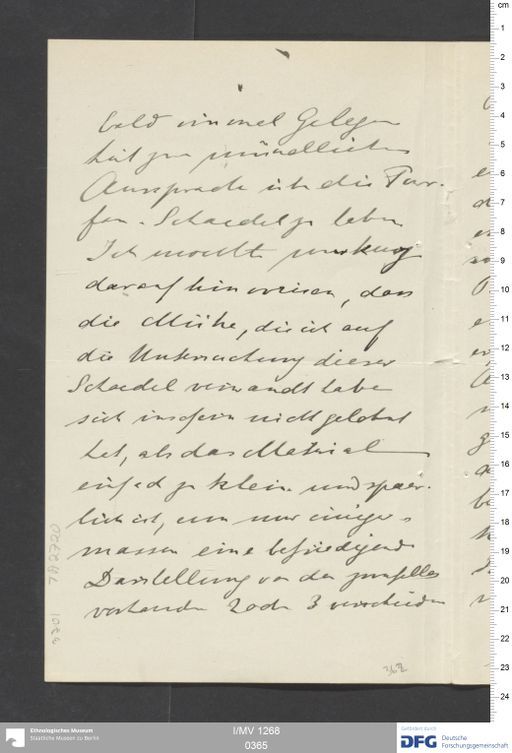 bald einmal Gelegen
heit zur mündlichen
Aussprache über die Tur-
fan-Schaedel zu haben
Ich moechte nur kurz
darauf hinweisen, dass
die Mühe, die ich auf
die Untersuchung dieser
Schaedel verwandt habe
sich insofern nicht gelohnt
hat, als das Material
einfach zu klein und spaer-
lich ist, um nur einiger-
massen eine befriedigende
Darstellung von den zweifellos
vorhanden 2 oder 3 verschieden
7A2720
1079
362
Ethnologisches Museum
Staatliche Museen zu Berlin
I/MV 1268
0365
Gefördert durch
DFG Deutsche
Forschungsgemeinschaft
cm
1
2
3
4
5
6
7
8
9
10
11
12
13
14
15
16
17
18
19
20
21
22
23
24